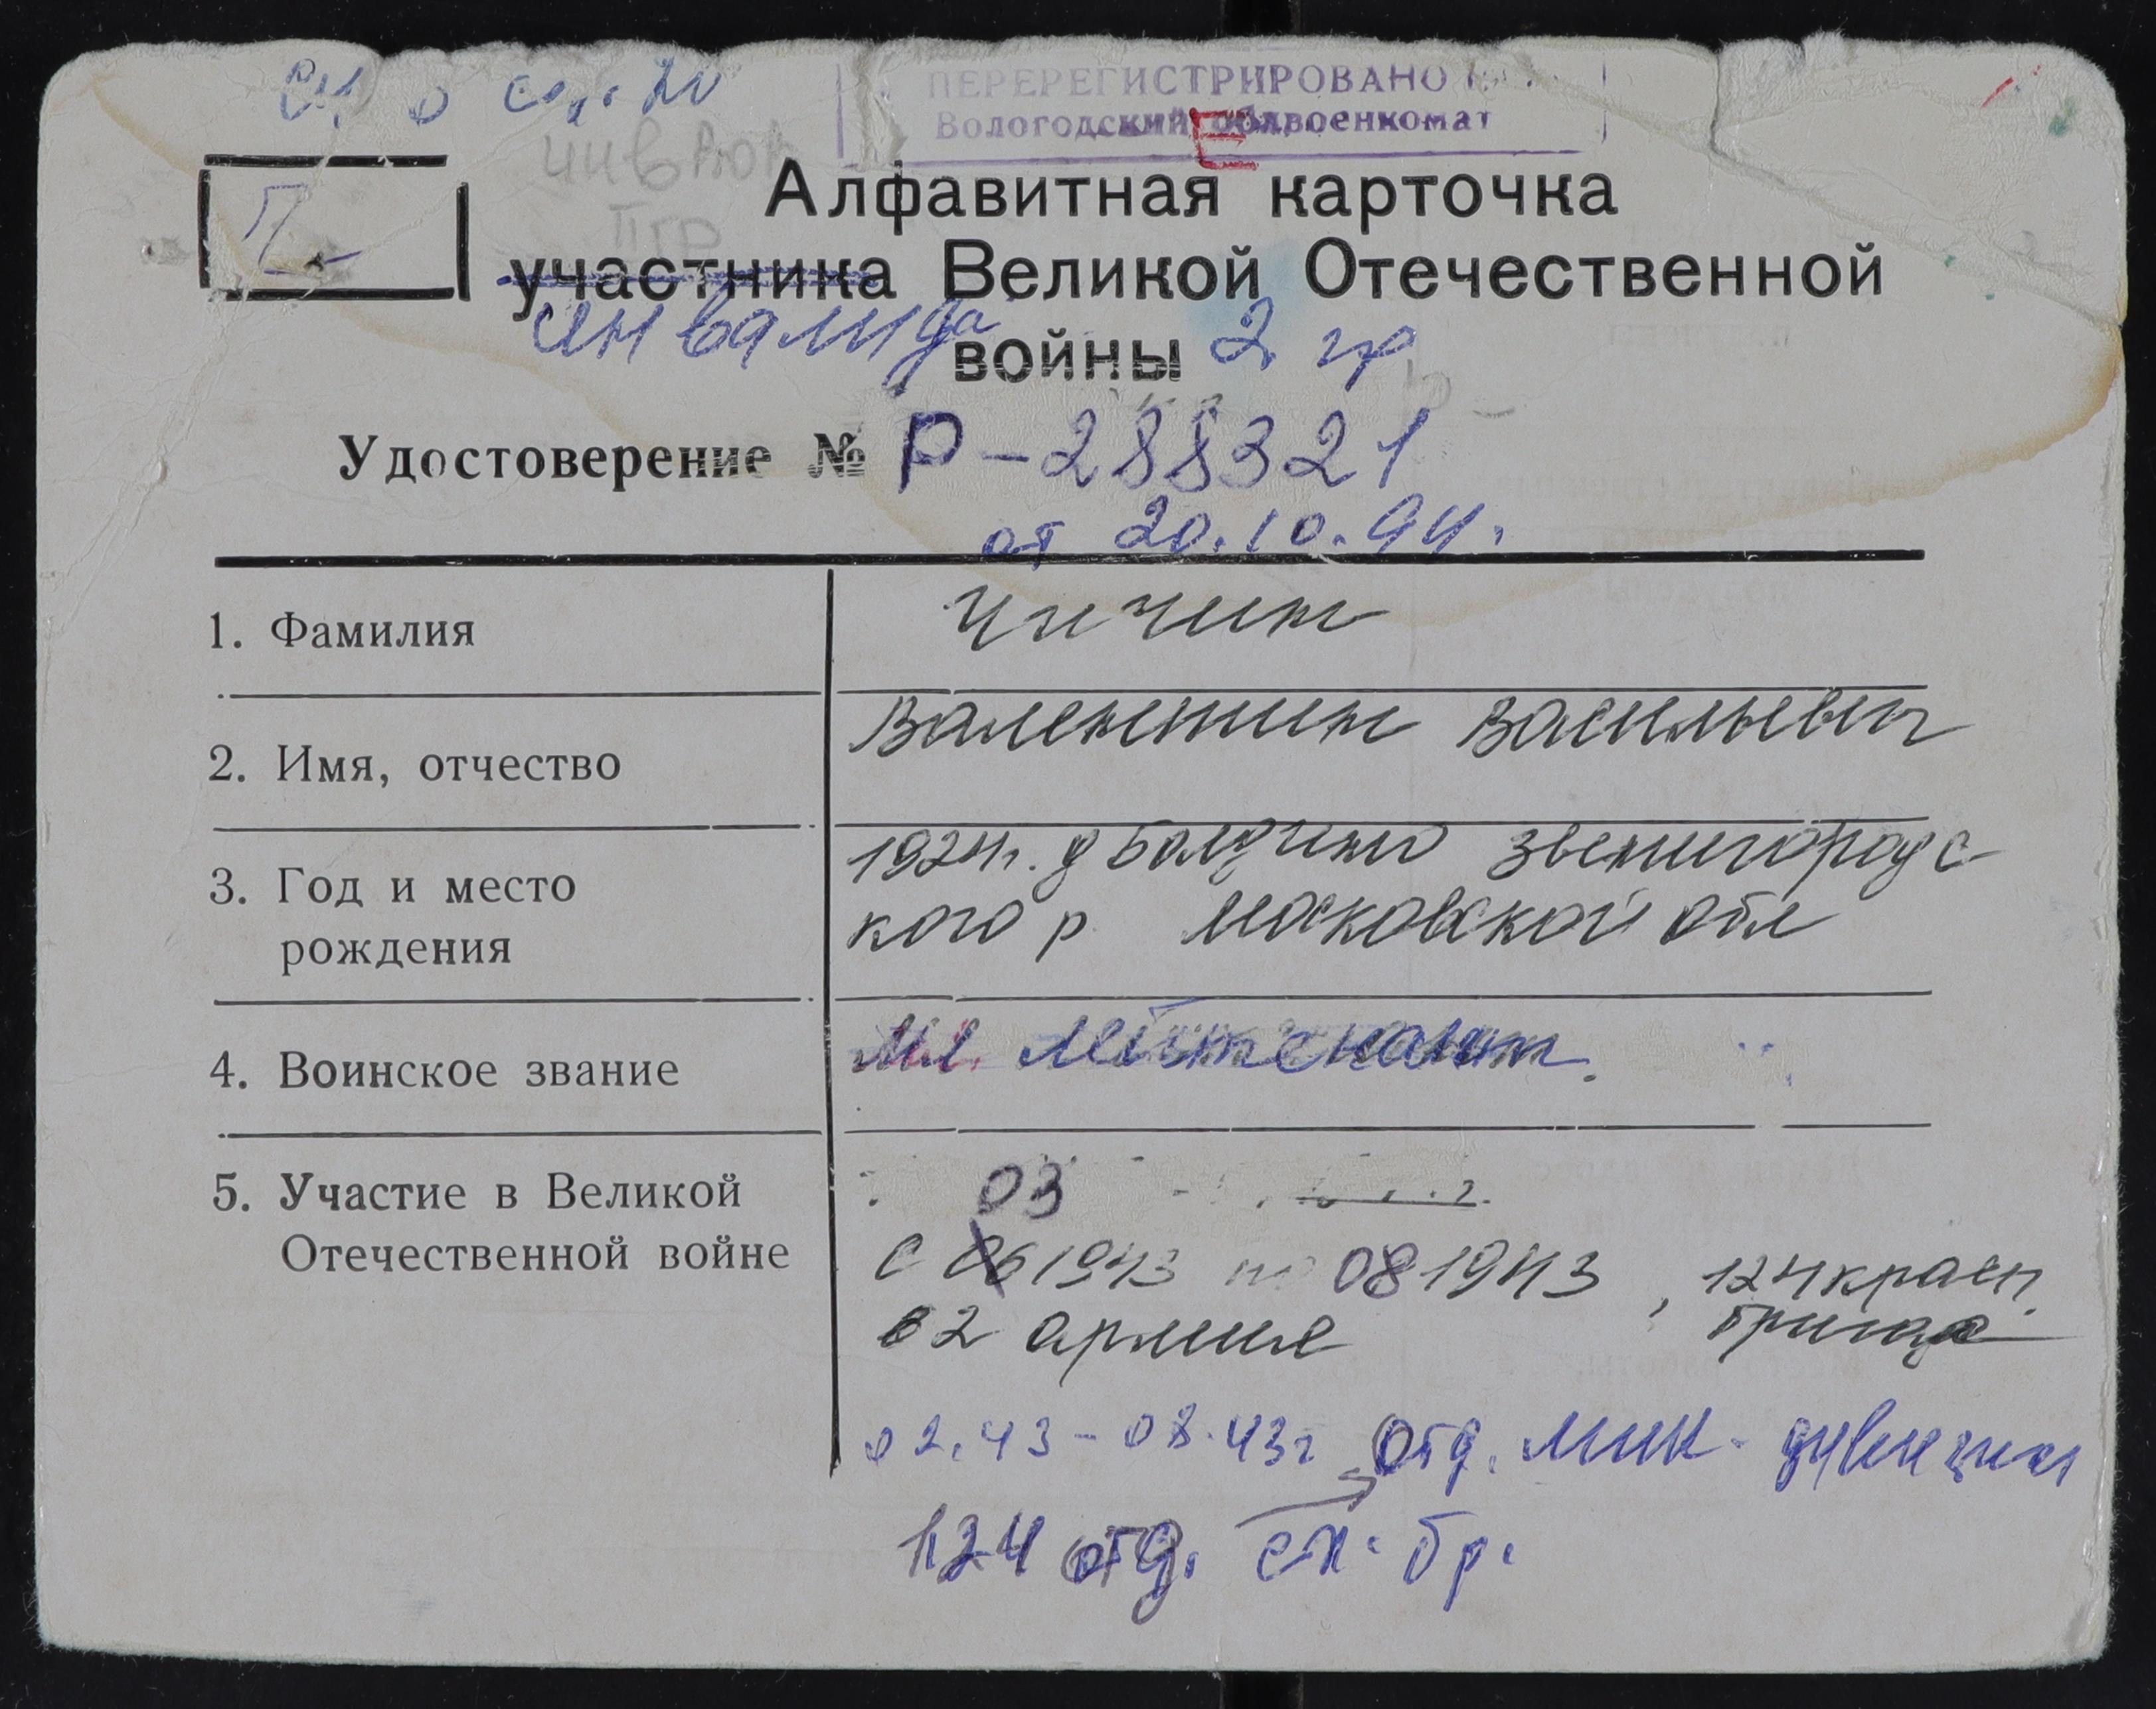 ПЕРЕРЕГИСТРИРОВАНО
Вологодский облвоенкомат
Е
инв
II гр
Алфавитная карточка
участника Великой Отечественной
инвалида войны 2 гр
Удостоверение № Р-288321
от 20.10.94.
1. Фамилия Чичин
2. Имя, отчество Валентин Васильевич
3. Год и место 1924г. д Болдино Звенигородс-
рождения кого р Московской обл
4. Воинское звание Мл. лейтенант.
5. Участие в Великой 03
Отечественной войне с 06 1943 по 08 1943, 124 красн.
62 армия бригада
02.43-08.43г Отд. мин. дивизия
124 отд. сп. бр.